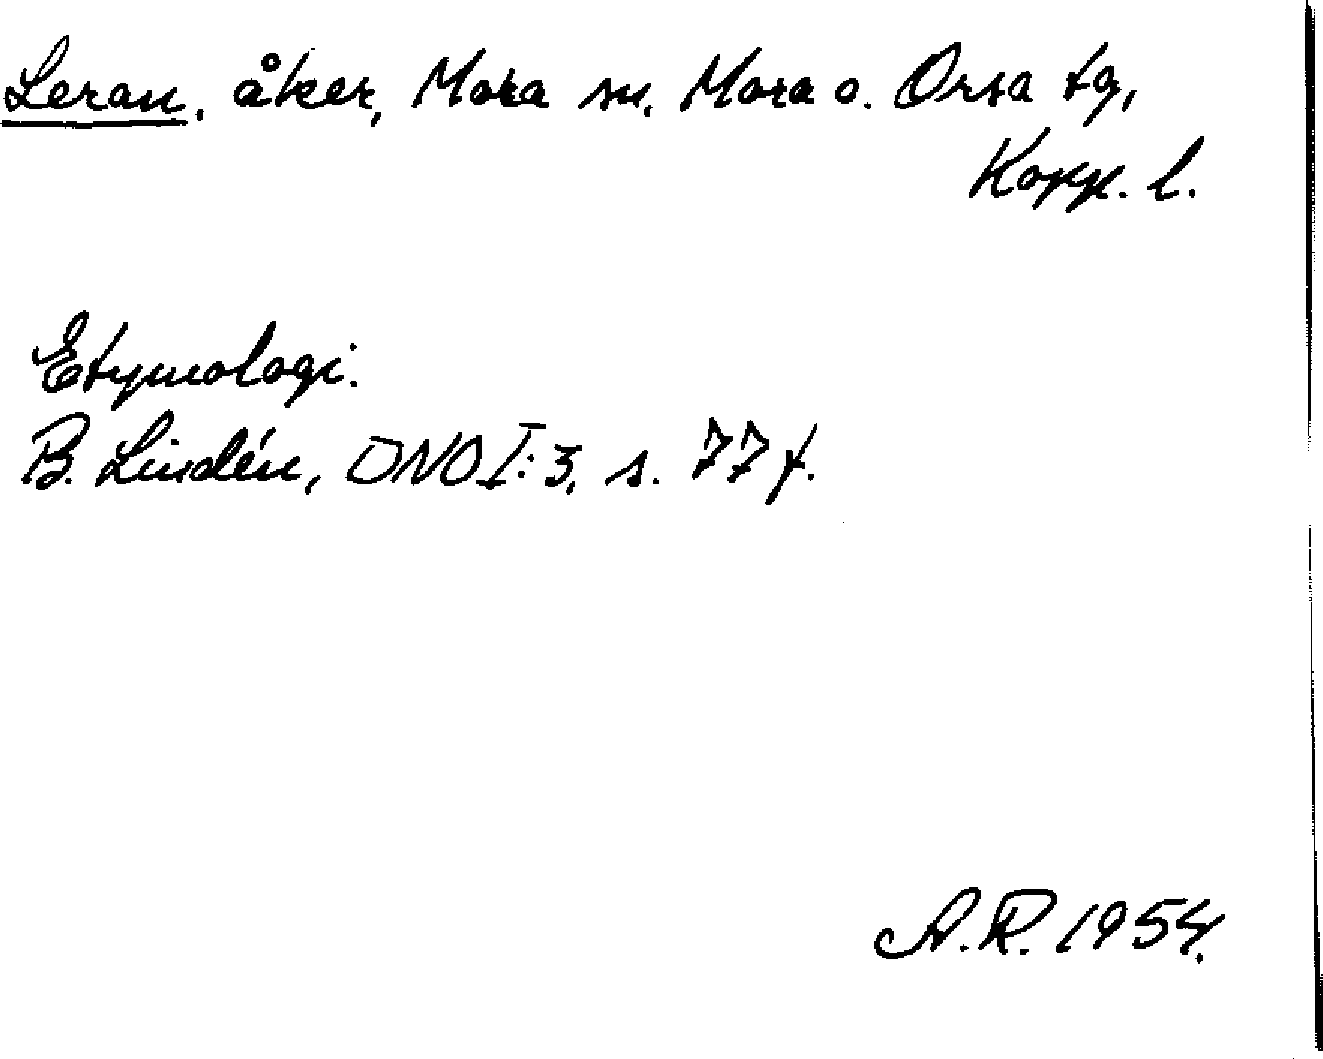 Leran, åker, Mora sn. Mora o. Orsa tg,
Kopp. l.
Etymologi.
B. Lindén, DNO I:3, s. 77 f.
A.R. 1954.